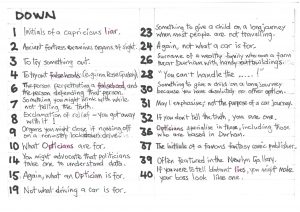 DOWN
1 Initials of a capricious liar.
2 Ancient fortress or various organs of sight.
3 To lay something out.
4 To tryout falsehoods (e.g. in a Rose Garden).
6 The person perpetrating a falsehood, and
the person defending that person.
7 Something you might drive with while
not telling the truth.
8 Exclamation of relief - you got away
with it!
9 Organs you might close if nodding off
on a non-stop
10 What Opticians are for.
14 You might advocate that politicians
take one to understand data.
15 Again, what an Optician is for.
19 Not what driving a car is for.
23 Something to give a child on a long journey
when most people are not travelling.
24 Again, not what a car is for.
26 Surname of a wealthy family who own a farm
near Durham with handy outbuildings.
28 "You can't handle the .....!"
30 Something to give a child on a long journey
because you have absolutely no other option.
31 May I emphasise; not the purpose of a car journey.
32 If you don't tell the truth, you are one.
36 Opticians specialise in these, including those
who are based in Durham.
37 The initials of a famous fantasy comic publisher.
39 Often featured in the Newlyn Gallery.
40 If you were to tell blatant lies, you might make
your boss look like one.